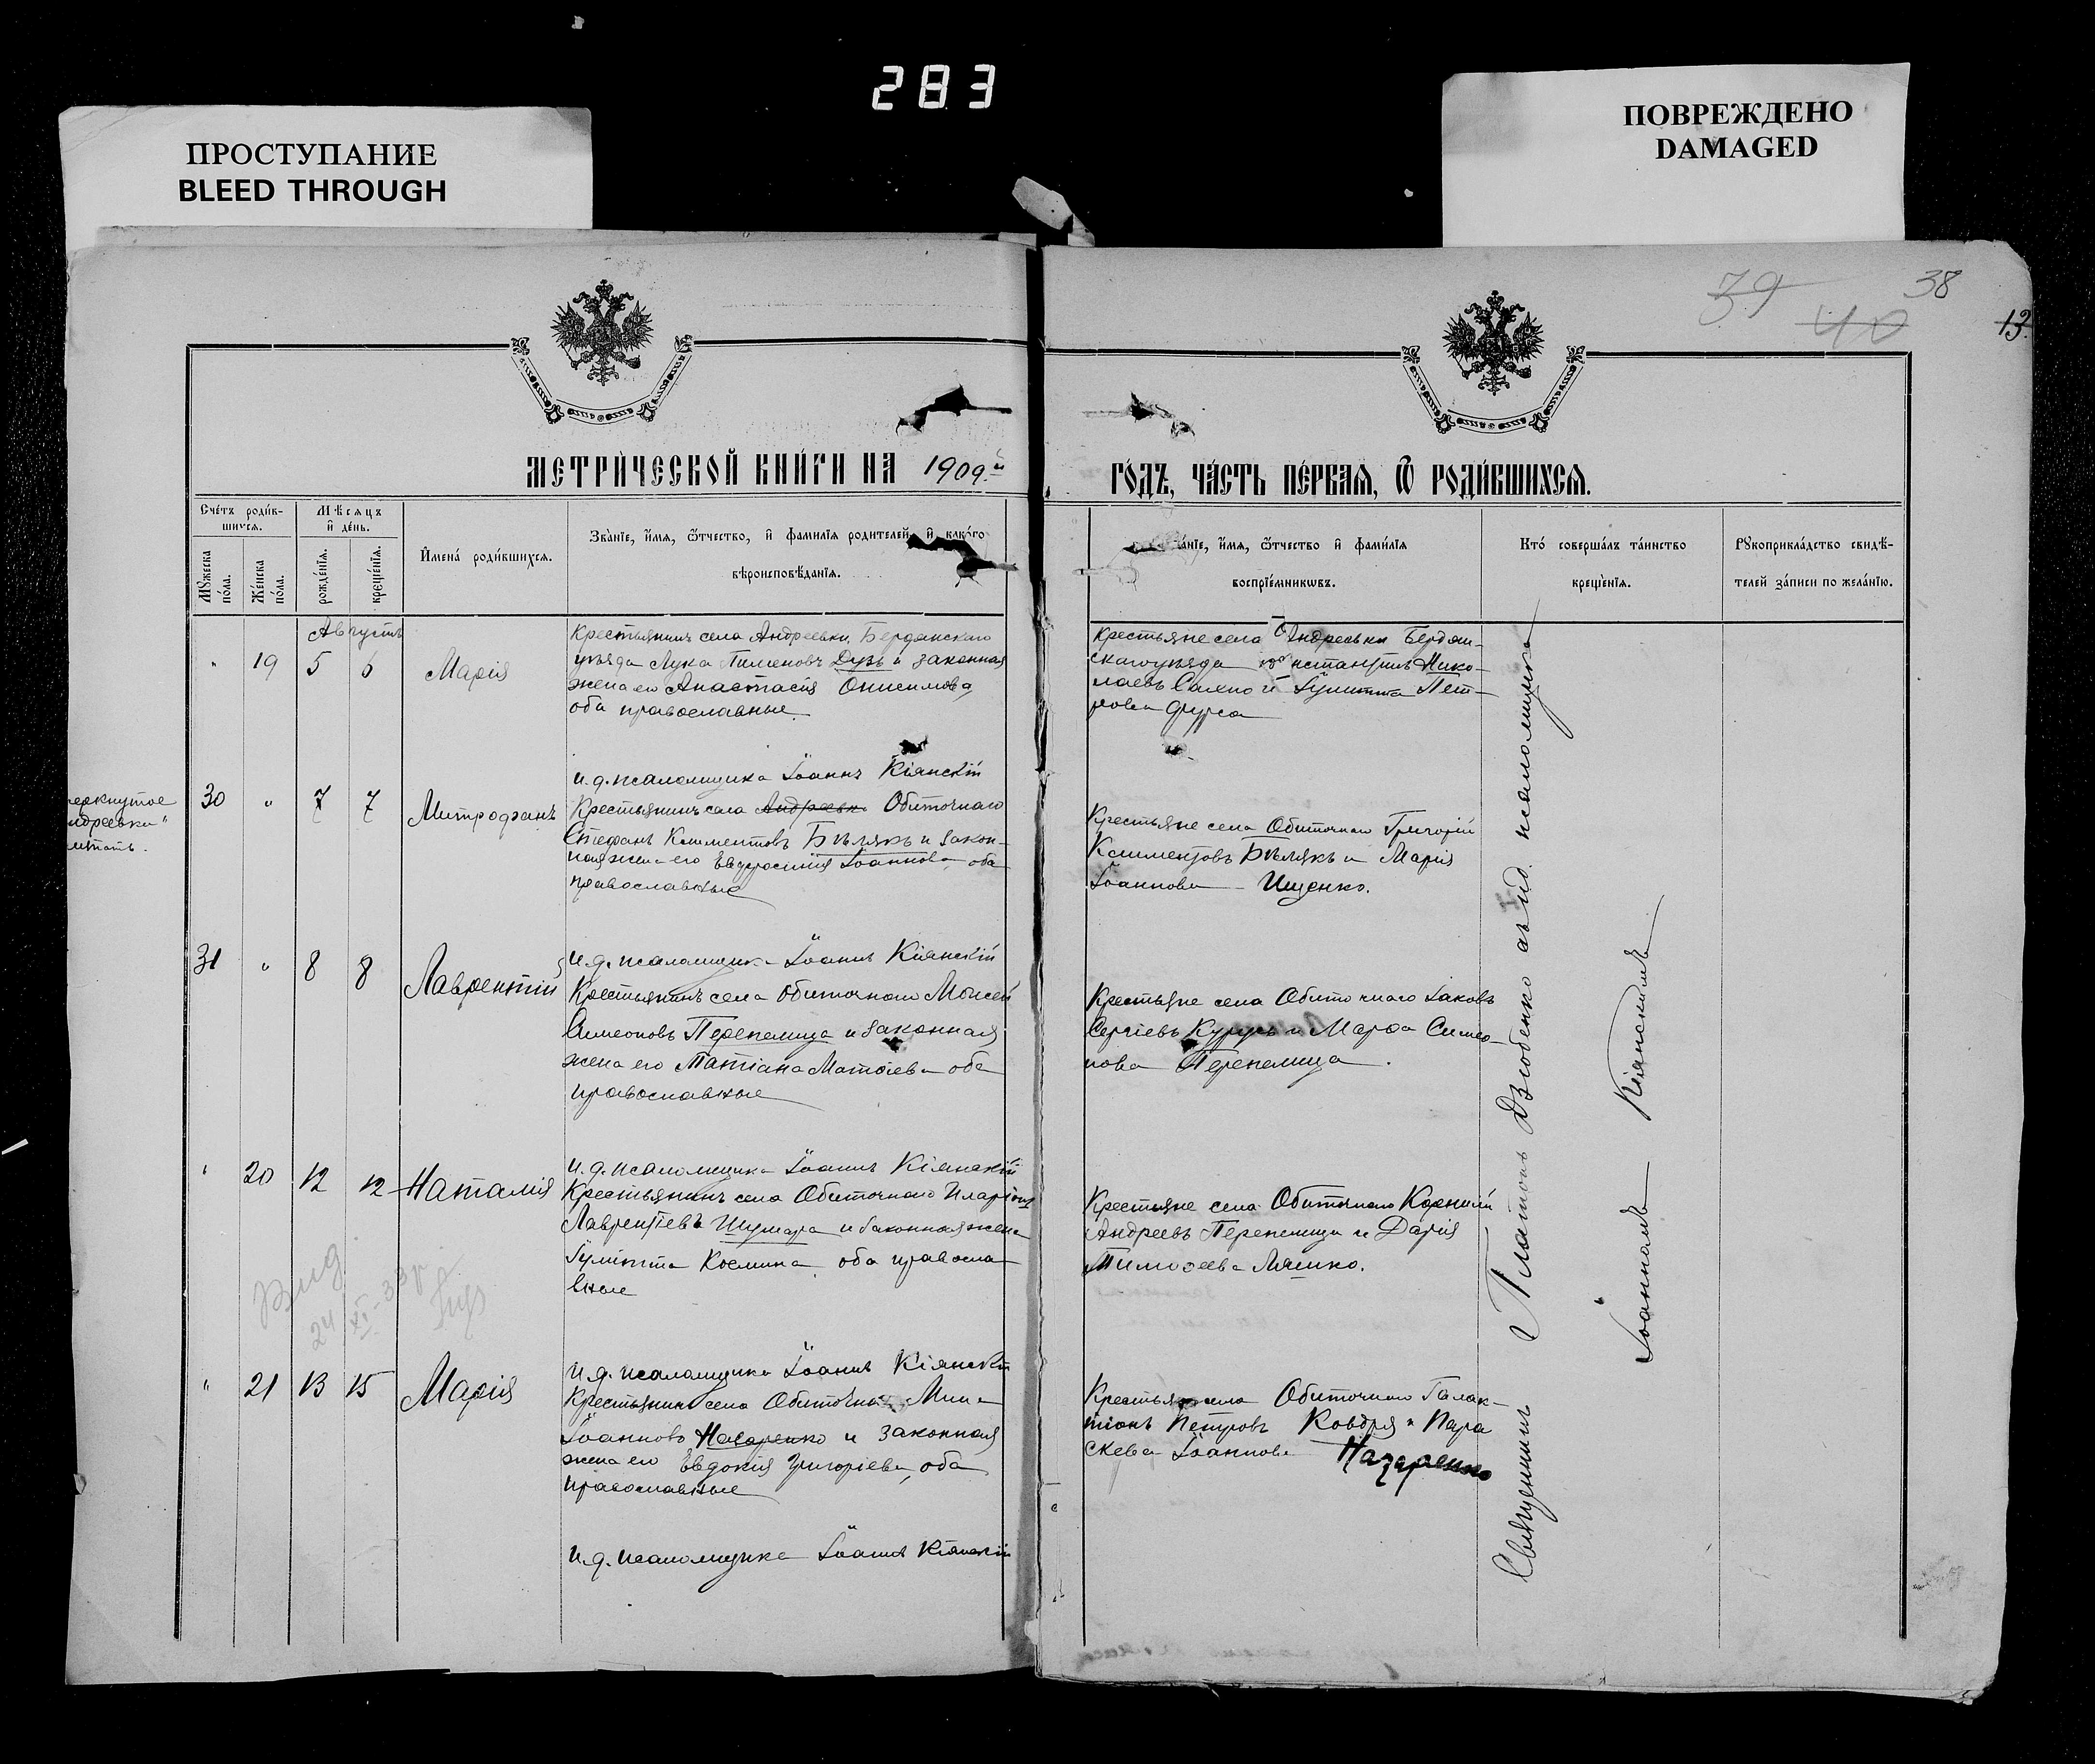 283
ПРОСТУПАНИЕ
BLEED THROUGH
ПОВРЕЖДЕНО
DAMAGED
39
40
38
13
МЕТРИ́ЧЕСКОЙ КНИ́ГИ НА 1909.й
ГО́ДЪ, ЧА́СТЬ ПЕ́РВАѦ, Ѿ РОДИ́ВШИХСѦ.
Сче́тъ роди́в-
шихсѧ.
Мꙋжеска по́ла.
Же́нска по́ла.
Мѣ́сѧцъ и҆ де́нь.
рожде́нїѧ.
креще́нїѧ.
И҆мена̀ роди́вшихсѧ.
Зва́нїе, и҆́мѧ, ѻ҆́тчество, и҆ фами́лїѧ роди́телей, и҆ како́го
вѣроисповѣ́данїѧ.
а́нїе, и҆́мѧ, ѻ҆́тчество и҆ фами́лїѧ
воспрїе́мникѡвъ.
Кто́ соверша́лъ та́инство
креще́нїѧ.
Рꙋкоприкла́дство свидѣ́-
телей за́писи по жела́нїю.
Августъ
" 19 5 6 Марія
Крестьянинъ села Андреевки, Бердянскаго
уѣзда Лука Пименовъ Дузь и законная
жена его Анастасія Онисимова
оба православные.
Крестьяне села Андреевки Бердян-
скаго уѣзда Константинъ Нико-
лаевъ и Іулитта Пет-
рова
и. д. псаломщика Іоаннъ Кіянскій
еркнутое
ндреевки"
итать.
30 " 7 7 Митрофанъ
Крестьянинъ села Андреевки Обиточнаго
Стефанъ Климентовъ Бѣлякъ и закон-
ная жена его Евфросинія Іоаннова оба
православные
Крестьяне села Обиточнаго Григорій
Климентовъ Бѣлякъ и Марія
Іоаннова Ищенко.
и. д. псаломщика Іоаннъ Кіянскій
31 " 8 8 Лаврентій
Крестьянинъ села Обиточнаго Моисей
Симеоновъ Перепелица и законная
жена его Татіана Матѳіева оба
православные
Крестьяне села Обиточнаго Іаковъ
Сергіевъ и Марѳа Симео-
нова Перепелица.
и. д. псаломщика Іоаннъ Кіянскій
" 20 12 12 Наталія
Крестьянинъ села Обиточнаго Иларіонъ
Лаврентіевъ и законная жена
Іулитта Космина, оба правосла
вные
Крестьяне села Обиточнаго Корнилій
Андреевъ Перепелица и Дарія
Тимоѳеева Ляшко.
24 XI - 33 р
и. д. псаломщика Іоаннъ Кіянскій
" 21 13 15 Марія
Крестьянинъ села Обиточнаго
Іоанновъ Назаренко и законная
жена его Евдокія Григоріева, оба
православные
села Обиточнаго Галак-
тіонъ Петровъ Ковдря и Пара
скева Іоаннова Назаренко
и. д. псаломщика Іоаннъ Кіянскій
Священникъ Платонъ Дзюбенко съ и. д. псаломщика
Іоанномъ Кіянскимъ